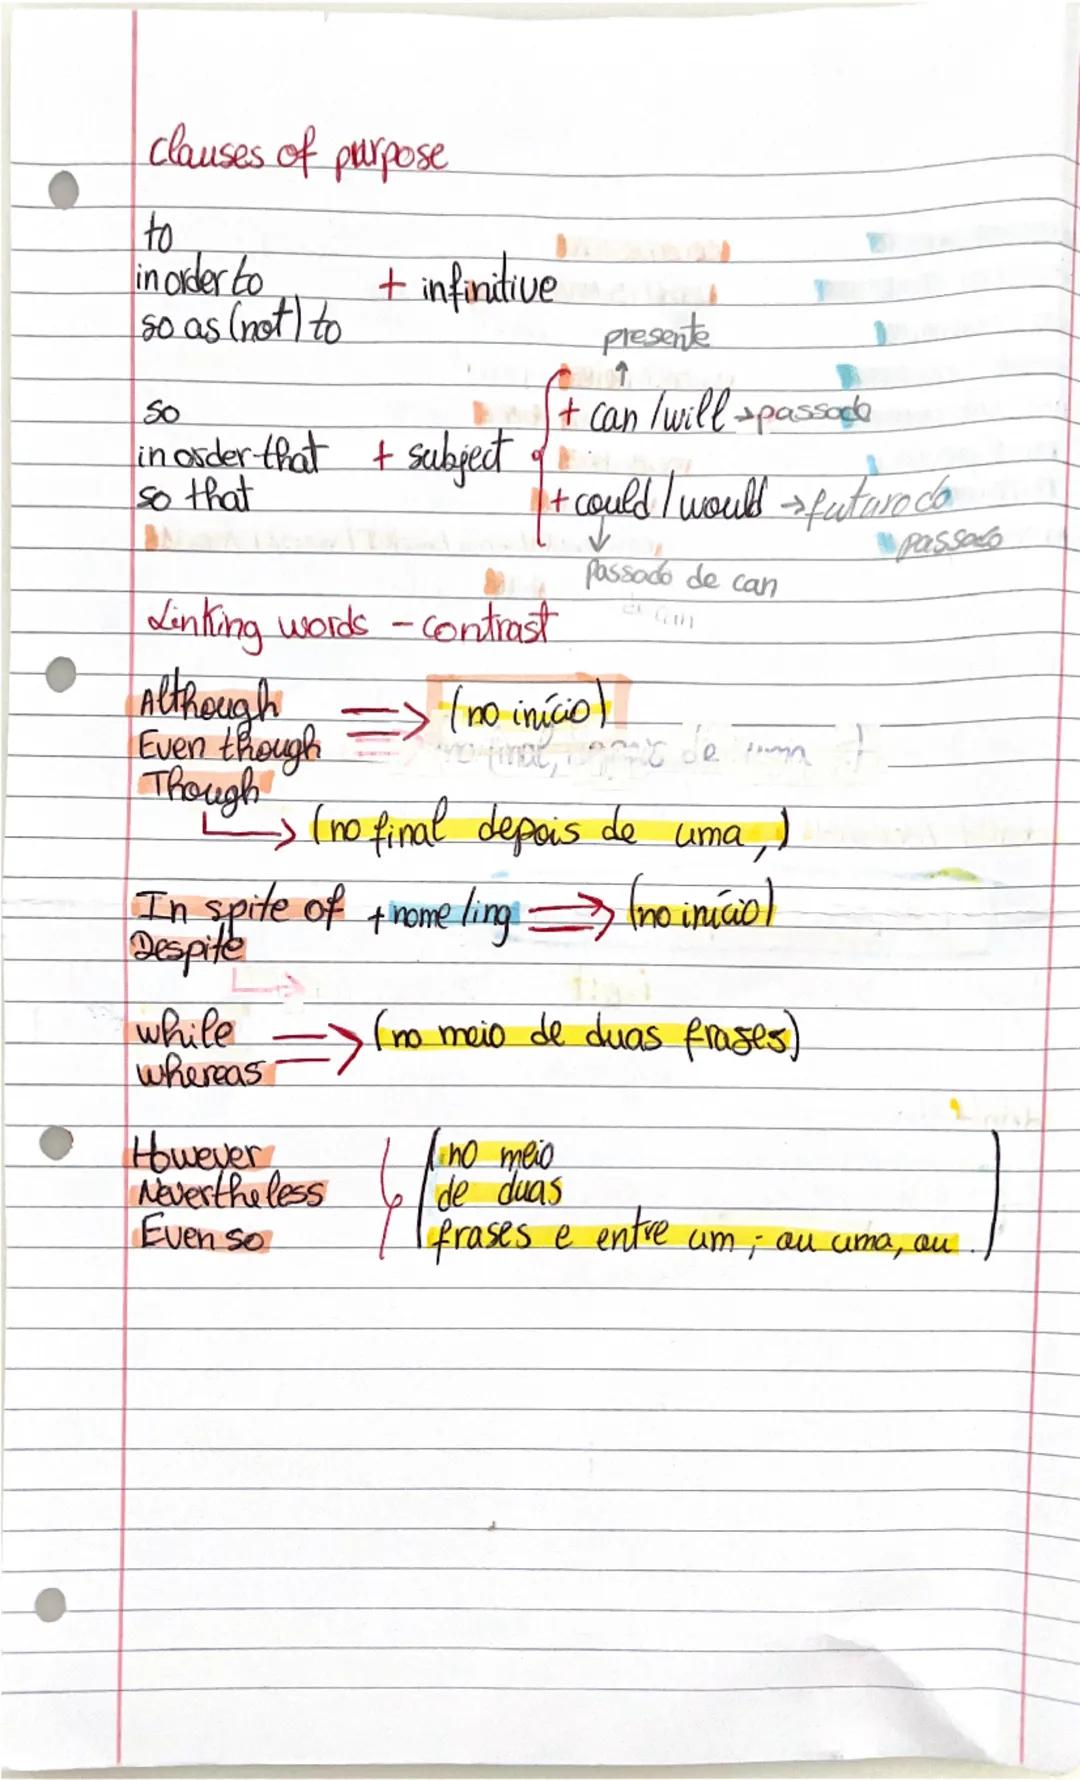 clauses of purpose
to
in order to + infinitive
so as (not) to
presente
↑
so + can / will → passado
in order that + subject
so that + could / would → futuro do
passado
↓
passado de can
Linking words - contrast
Although ⇒ (no início)
Even though
Though
↳ (no final depois de uma ,)
In spite of + nome / ing ⇒ (no início)
Despite
while ⇒ (no meio de duas frases)
whereas
However (no meio
Nevertheless de duas
Even so frases e entre um ; ou uma, ou .)